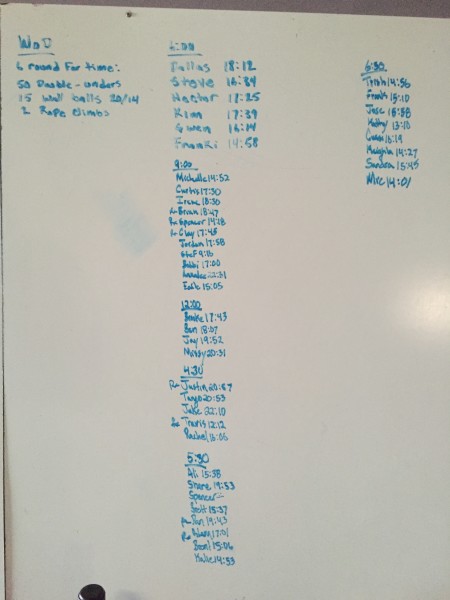 WOD
6 round For time:
50 Double-unders
15 wall balls 20/14
2 Rope climbs
6:00
Dallas 18:12
Steve 16:34
Hector 17:25
Kim 17:39
Gwen 16:14
Franki 14:58
9:00
Michelle 14:52
Curtis 17:30
Irene 18:30
Rx Brian 18:47
Rx Spencer 14:18
Rx Clay 17:45
Jordan 17:58
Stef 9:16
Bobbi 17:00
15:05
12:00
Brooke 17:43
Ben 18:07
Jay 19:52
Missy 20:31
4:30
Rx Justin 20:57
Tanya 20:53
Jake 22:10
Rx Travis 12:12
Rachel 16:06
5:30
Ali 15:38
Shane 19:53
Spencer
Scott 15:37
19:43
Rx Adam 17:01
15:06
Katie 14:53
6:30
Trish 14:56
Frank 15:10
Jose
Kathy 13:10
15:19
Meighin 14:27
Sandra 15:45
14:01